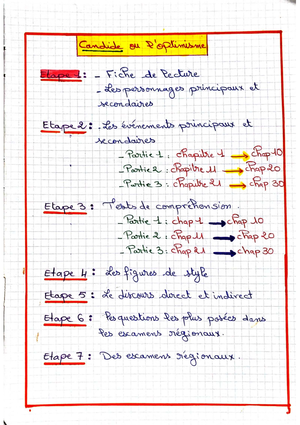 Candide ou l'optimisme
Etape 1 : - Fiche de lecture
- Les personnages principaux et
secondaires
Etape 2 : . Les événements principaux et
secondaires
- Partie 1 : chapitre 1 → chap 10
- Partie 2 : chapitre 11 → chap 20
- Partie 3 : chapitre 21 → chap 30
Etape 3 : Tests de compréhension.
- Partie 1 : chap 1 → chap 10
- Partie 2 : chap 11 → chap 20
- Partie 3 : chap 21 → chap 30
Etape 4 : Les figures de style
Etape 5 : Le discours direct et indirect
Etape 6 : Les questions les plus posées dans
les examens régionaux.
Etape 7 : Des examens régionaux.